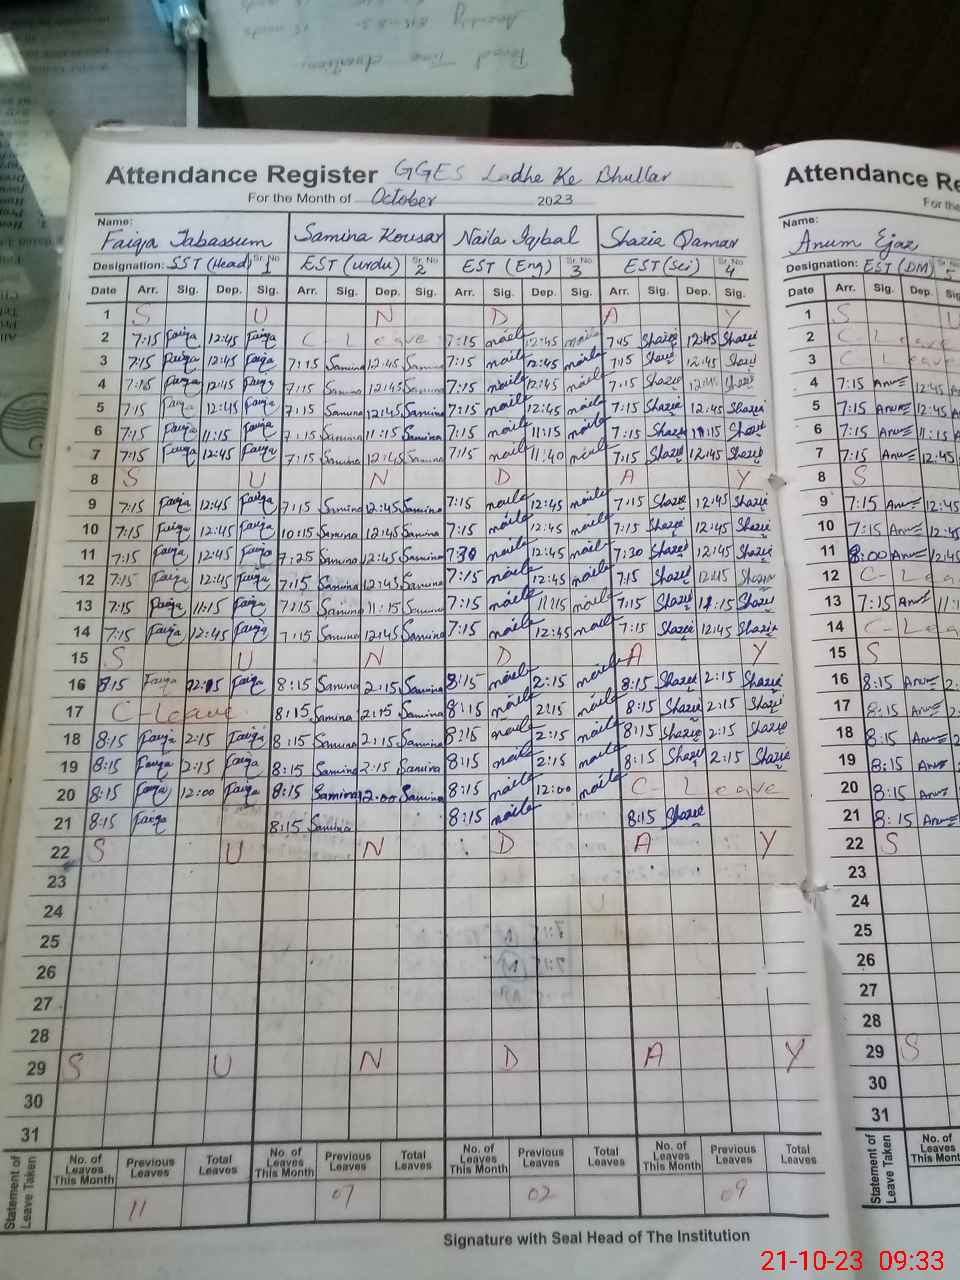 Attendance Register GGES Ladhe Ke Bhullar
For the Month of October 2023
Name:
Faiqa Tabassum Samina Kousar Naila Iqbal Shazia Qamar
Designation: SST (Head) Sr. No 1 EST (urdu) Sr. No 2 EST (Eng) Sr. No 3 EST (Sci) Sr. No 4
Date Arr. Sig. Dep. Sig. Arr. Sig. Dep. Sig. Arr. Sig. Dep. Sig. Arr. Sig. Dep. Sig.
1 S U N D A Y
2 7:15 Faiqa 12:45 Faiqa C- Leave 7:15 naila 12:45 naila 7:45 Shazia 12:45 Shazia
3 7:15 Faiqa 12:45 Faiqa 7:15 Samina 12:45 Samina 7:15 naila 12:45 naila 7:45 Shazia 12:45 Shazia
4 7:15 Faiqa 12:45 Faiqa 7:15 Samina 12:45 Samina 7:15 naila 12:45 naila 7:15 Shazia 12:45 Shazia
5 7:15 Faiqa 12:45 Faiqa 7:15 Samina 12:45 Samina 7:15 naila 12:45 naila 7:15 Shazia 12:45 Shazia
6 7:15 Faiqa 11:15 Faiqa 7:15 Samina 11:15 Samina 7:15 naila 11:15 naila 7:15 Shazia 11:15 Shazia
7 7:15 Faiqa 12:45 Faiqa 7:15 Samina 12:45 Samina 7:15 naila 11:40 naila 7:15 Shazia 12:45 Shazia
8 S U N D A Y
9 7:15 Faiqa 12:45 Faiqa 7:15 Samina 12:45 Samina 7:15 naila 12:45 naila 7:15 Shazia 12:45 Shazia
10 7:15 Faiqa 12:45 Faiqa 10:15 Samina 12:45 Samina 7:15 naila 12:45 naila 7:15 Shazia 12:45 Shazia
11 7:15 Faiqa 12:45 Faiqa 7:25 Samina 12:45 Samina 7:30 naila 12:45 naila 7:30 Shazia 12:45 Shazia
12 7:15 Faiqa 12:45 Faiqa 7:15 Samina 12:45 Samina 7:15 naila 12:45 naila 7:15 Shazia 12:45 Shazia
13 7:15 Faiqa 11:15 Faiqa 7:15 Samina 11:15 Samina 7:15 naila 11:15 naila 7:15 Shazia 11:15 Shazia
14 7:15 Faiqa 12:45 Faiqa 7:15 Samina 12:45 Samina 7:15 naila 12:45 naila 7:15 Shazia 12:45 Shazia
15 S U N D A Y
16 8:15 Faiqa Faiqa 8:15 Samina 2:15 Samina 8:15 naila 2:15 naila 8:15 Shazia 2:15 Shazia
17 C-Leave 8:15 Samina 2:15 Samina 8:15 naila 2:15 naila 8:15 Shazia 2:15 Shazia
18 8:15 Faiqa 2:15 Faiqa 8:15 Samina 2:15 Samina 8:15 naila 2:15 naila 8:15 Shazia 2:15 Shazia
19 8:15 Faiqa 2:15 Faiqa 8:15 Samina 2:15 Samina 8:15 naila 2:15 naila 8:15 Shazia 2:15 Shazia
20 8:15 Faiqa 12:00 Faiqa 8:15 Samina 12:00 Samina 8:15 naila 12:00 naila C- Leave
21 8:15 Faiqa 8:15 Samina 8:15 naila 8:15 Shazia
22 S U N D A Y
23
24
25
26
27
28
29 S U N D A Y
30
31
Statement of Leave Taken
No. of Leaves This Month Previous Leaves Total Leaves No. of Leaves This Month Previous Leaves Total Leaves No. of Leaves This Month Previous Leaves Total Leaves No. of Leaves This Month Previous Leaves Total Leaves
11 07 02 09
Signature with Seal Head of The Institution
Attendance Re
For the
Name:
Anum Ejaz
Designation: EST (DM)
Date Arr. Sig. Dep.
1 S
2 C- Leave
3 C- Leave
4 7:15 Anum 12:45
5 7:15 Anum 12:45
6 7:15 Anum 11:15
7 7:15 Anum 12:45
8 S
9 7:15 Anum 12:45
10 7:15 Anum 12:45
11 8:00 Anum 12:45
12 C- Lea
13 7:15 Anum 11:1
14 C-Lea
15 S
16 8:15 Anum 2:
17 8:15 Anum 2:
18 8:15 Anum
19 8:15 Anum
20 8:15 Anum
21 8:15 Anum
22 S
23
24
25
26
27
28
29 S
30
31
Statement of Leave Taken
No. of Leaves This Month
21-10-23 09:33